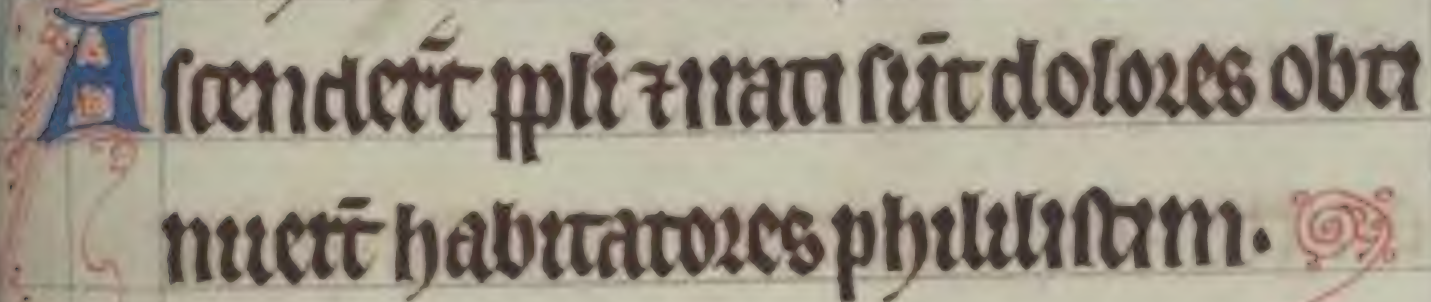 Ascender̄t ppl̓i ⁊ irati sūt dolores obti
nuer̄t habitatores phililistim.